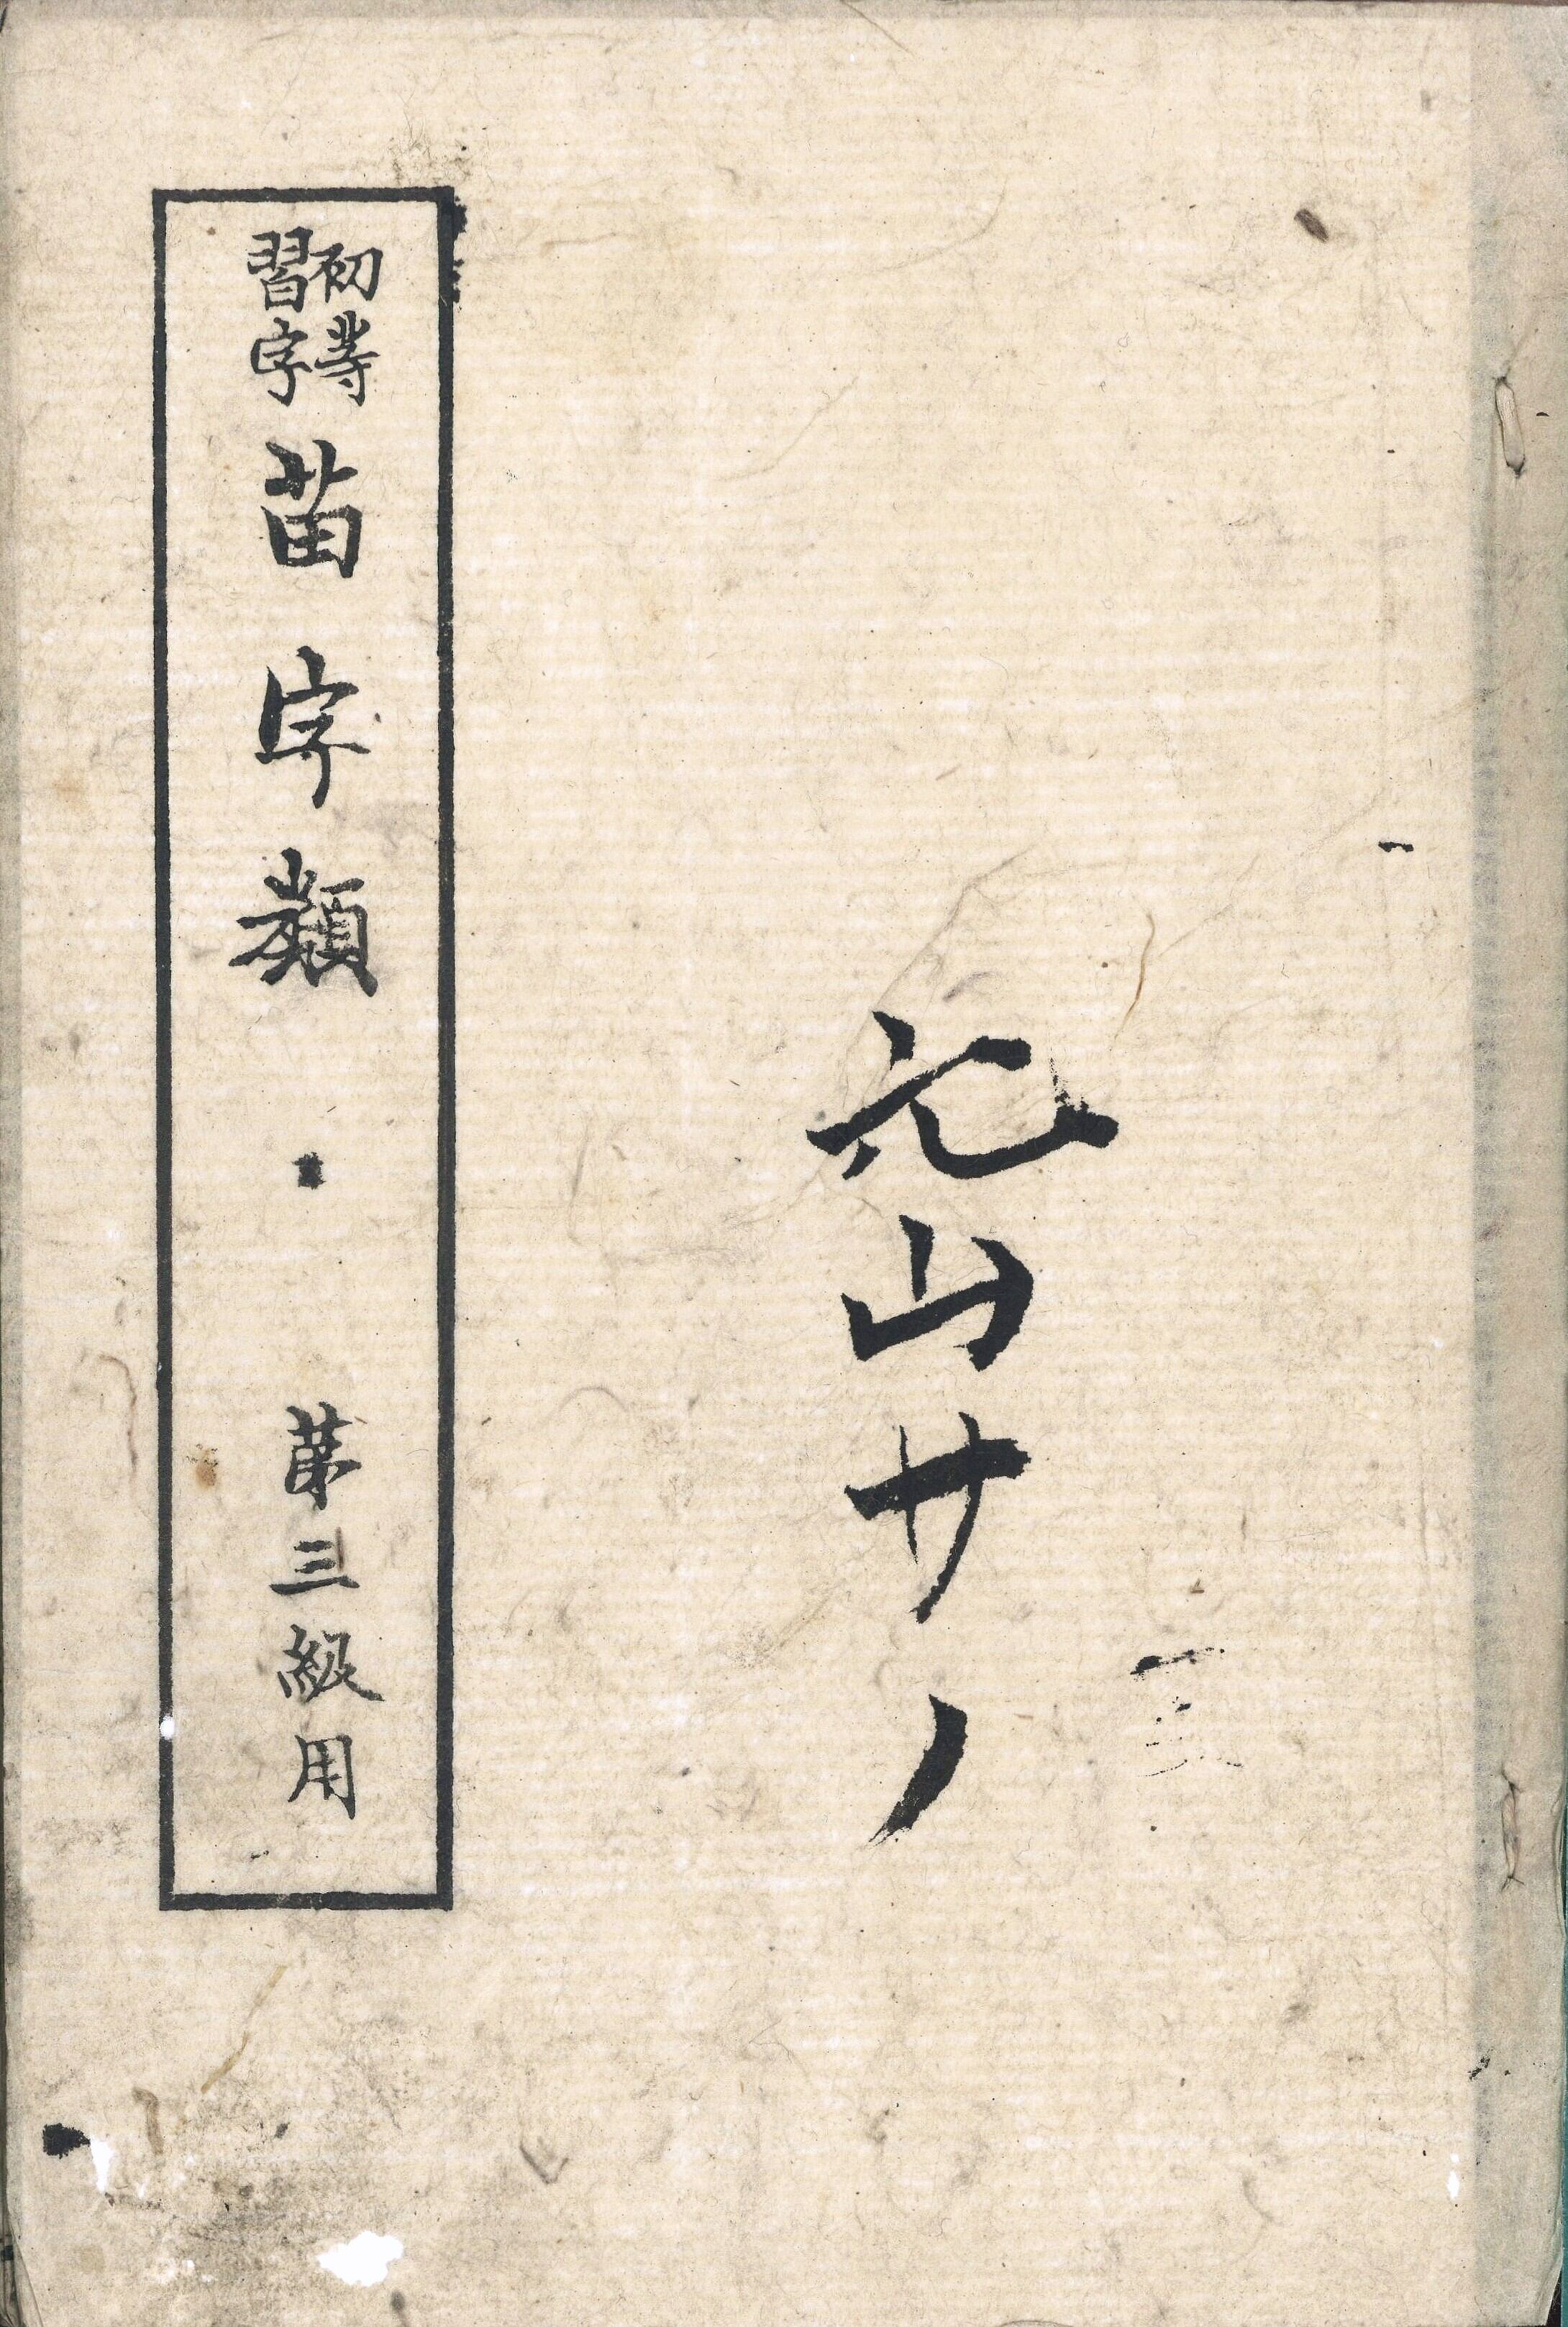 山サノ
初等
習字
苗字類
第三級用